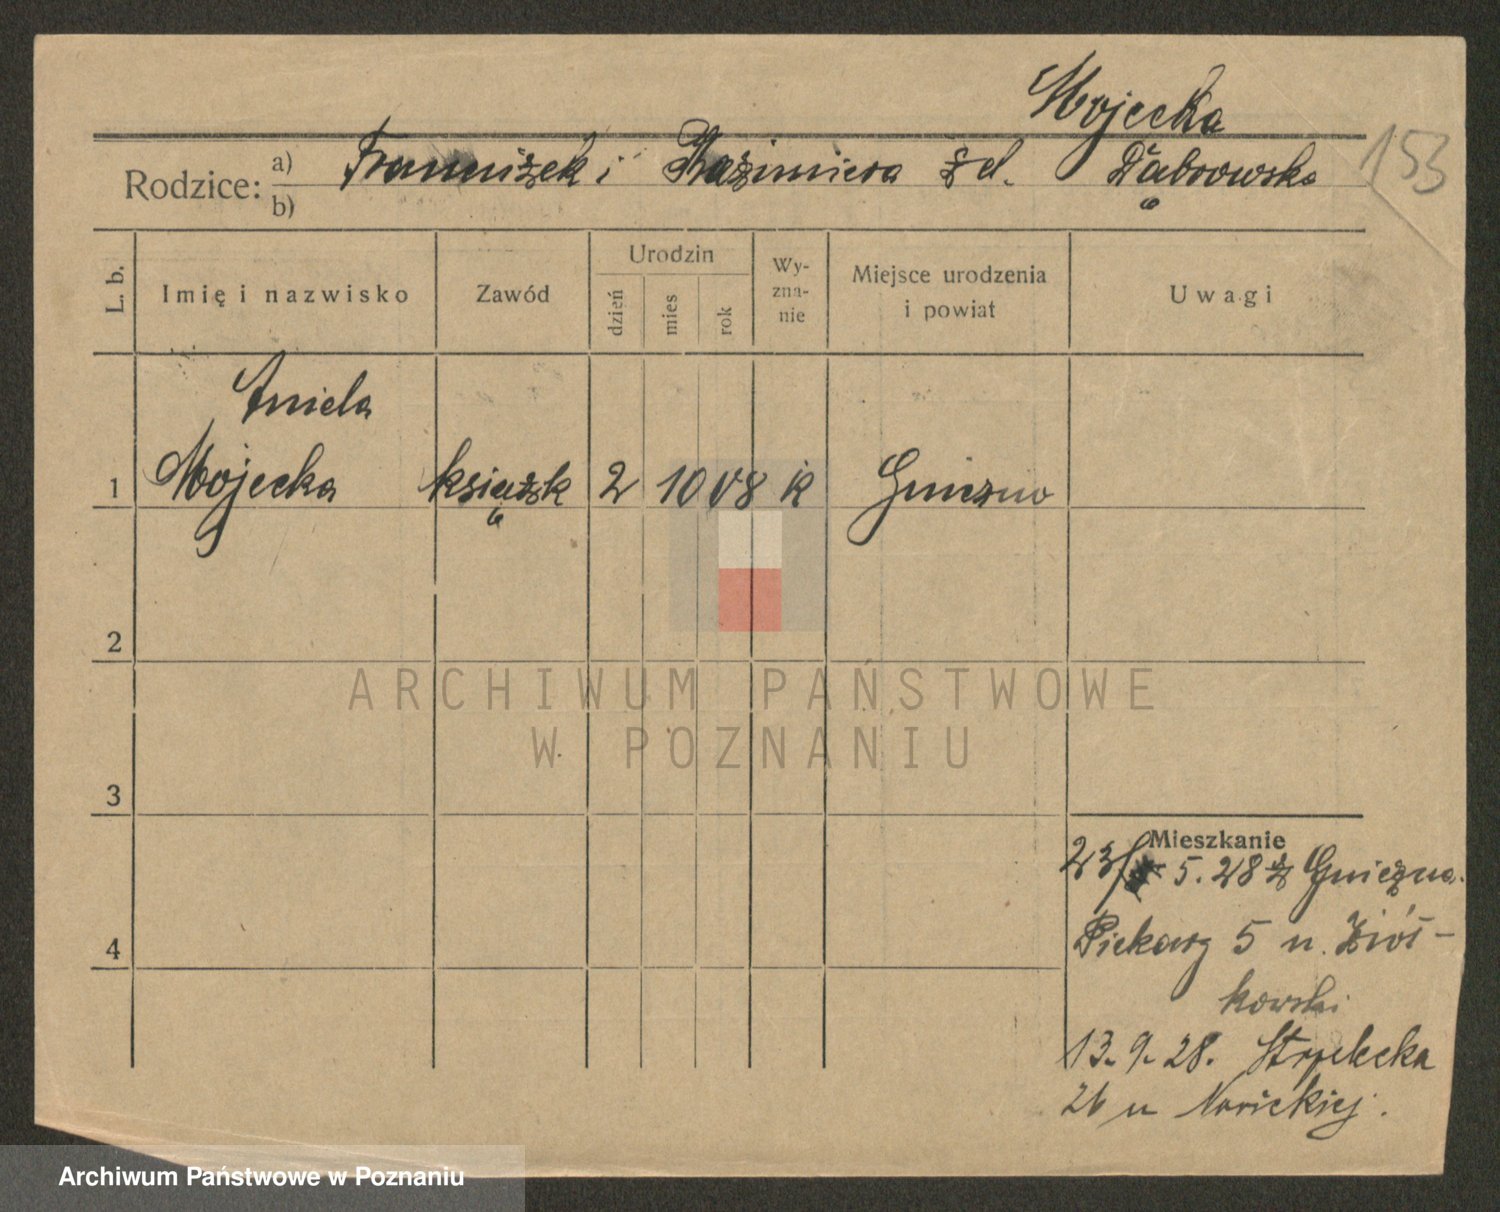 Mojecka
153
Rodzice: a) Franciszek i Kazimiera zd. Dąbrowska
b)
L. b.
Imię i nazwisko
Zawód
Urodzin
dzień
mies
rok
Wy-
zna-
nie
Miejsce urodzenia
i powiat
Uwagi
Aniela
1 Mojecka książk 2 10 08 k Gniezno
2
ARCHIWUM PAŃSTWOWE
W POZNANIU
3
Mieszkanie
23/ 5. 28 z Gniezna.
4
Piekary 5 u. Ziół-
kowski
13. 9. 28. Strzelecka
26 u Nowickiej.
Archiwum Państwowe w Poznaniu